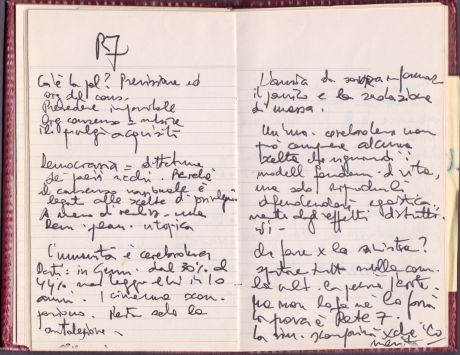 R7
Cos'è la pol? Previsione ed
org del cons.
Prevedere impossibile
Org consenso = nutrire
i privilegi acquisiti
Democrazia = dittatura
dei paesi ricchi. Perché
il consenso nazionale è
legato alle scelte di privilegio
A meno di realizz. una
Dem. plan. utopica
L'umanità è cerebrolesa
Dati: in Germ. dal 30% al
44% non legge libri in 10
anni. I cinema scom
paiono. Resta solo la
televisione
L'ansia da sovrainformaz
il panico e la sedazione
di massa.
Un'uma. cerebrolesa non
può compiere alcuna
scelta che riguardi i
modelli fondam. di vita,
ma solo riprodurli
difendendosi egoistica
mente dagli effetti distrutti
vi -
da fare x la sinistra?
tutto nella com.
la cult. la
ma non lo fa né lo farà
la prova è Rete 7.
La sin. scomparirà xché "Co
munista"